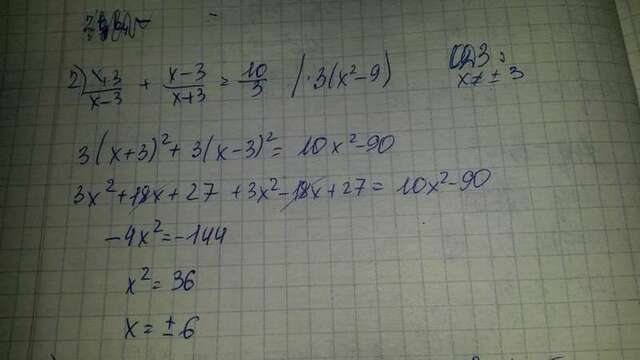 2) x+3/x-3 + x-3/x+3 = 10/3 /·3(x²-9)
ОДЗ:
x≠±3
3(x+3)²+3(x-3)²= 10x²-90
3x²+18x+27 +3x²-18x+27= 10x²-90
-4x²=-144
x²= 36
x=±6